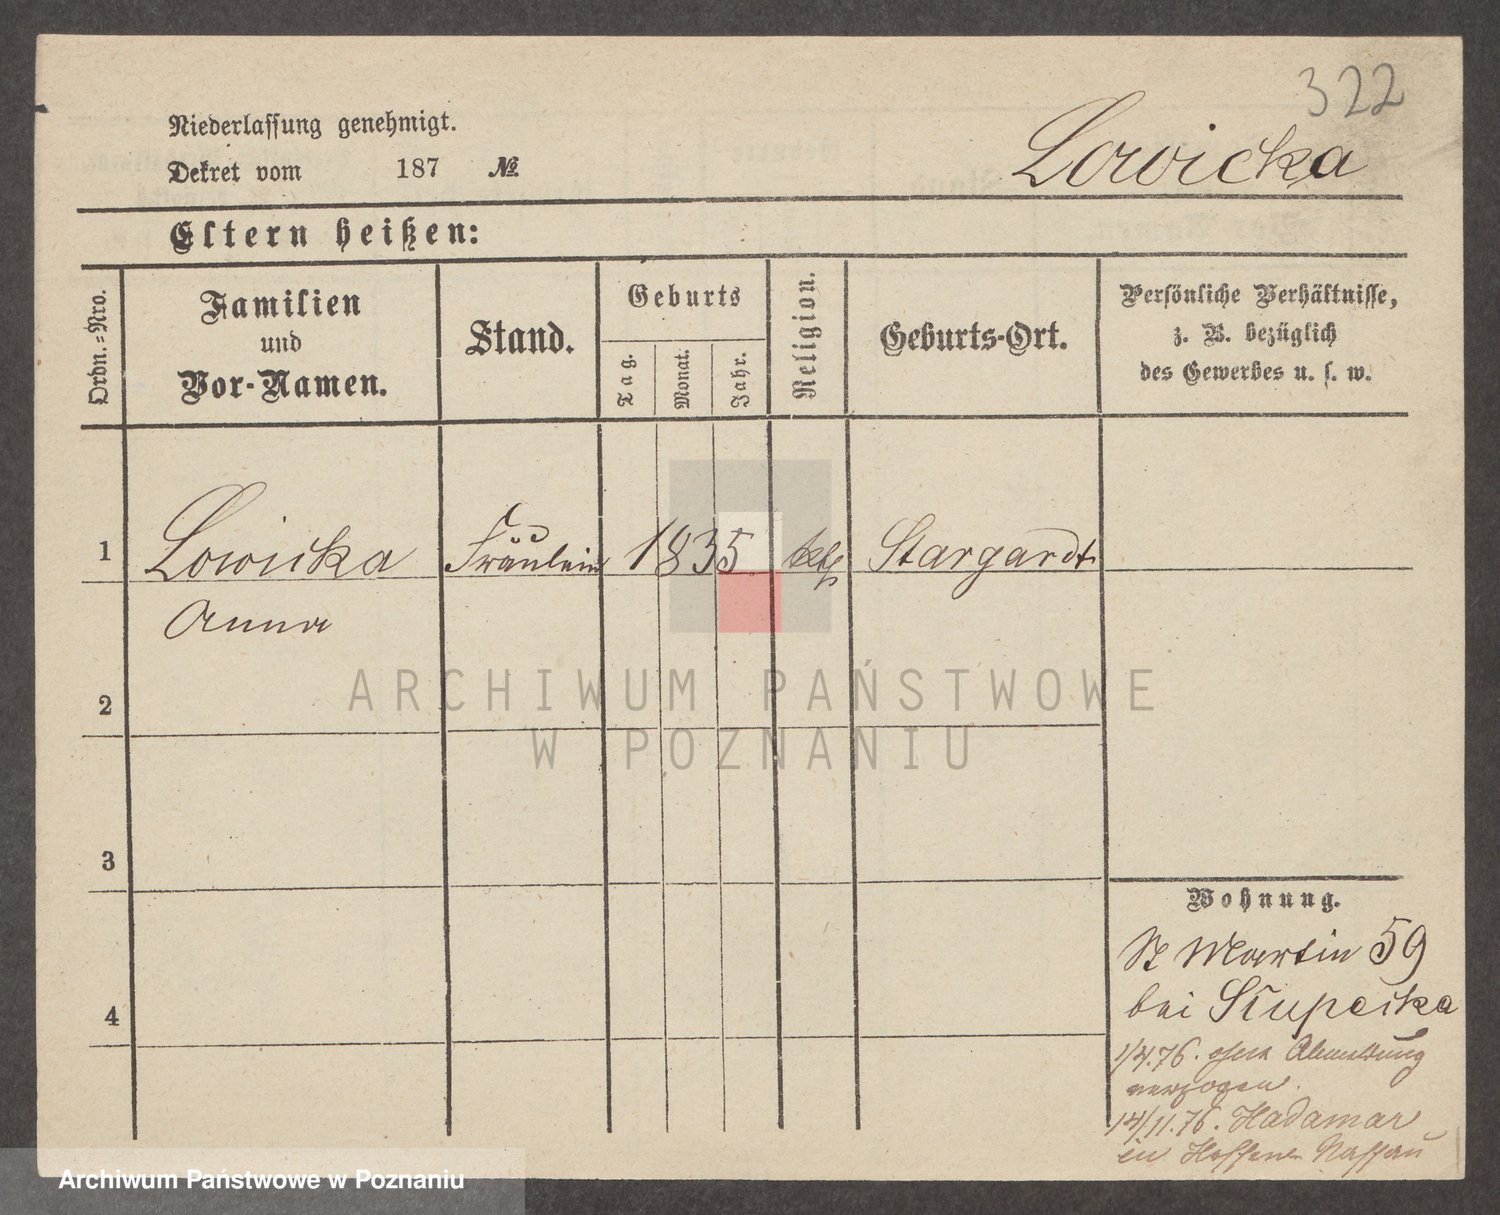 322
Niederlassung genehmigt.
Dekret vom 187 №
Lowicka
Eltern heißen:
Ordn.=Nro.
Familien
und
Vor-Namen.
Stand.
Geburts
Tag.
Monat.
Jahr.
Religion.
Geburts-Ort.
Persönliche Verhältnisse,
z. B. bezüglich
des Gewerbes u. s. w.
1 Lowicka Fräulein 1835 kth Stargardt
Anna
2
3
4
Wohnung.
St Martin 59
bei Słupecka
1/4.76. ohne Abmeldung
verzogen.
14/11.76. Hadamar
in Hessen Nassau
ARCHIWUM PAŃSTWOWE
W POZNANIU
Archiwum Państwowe w Poznaniu